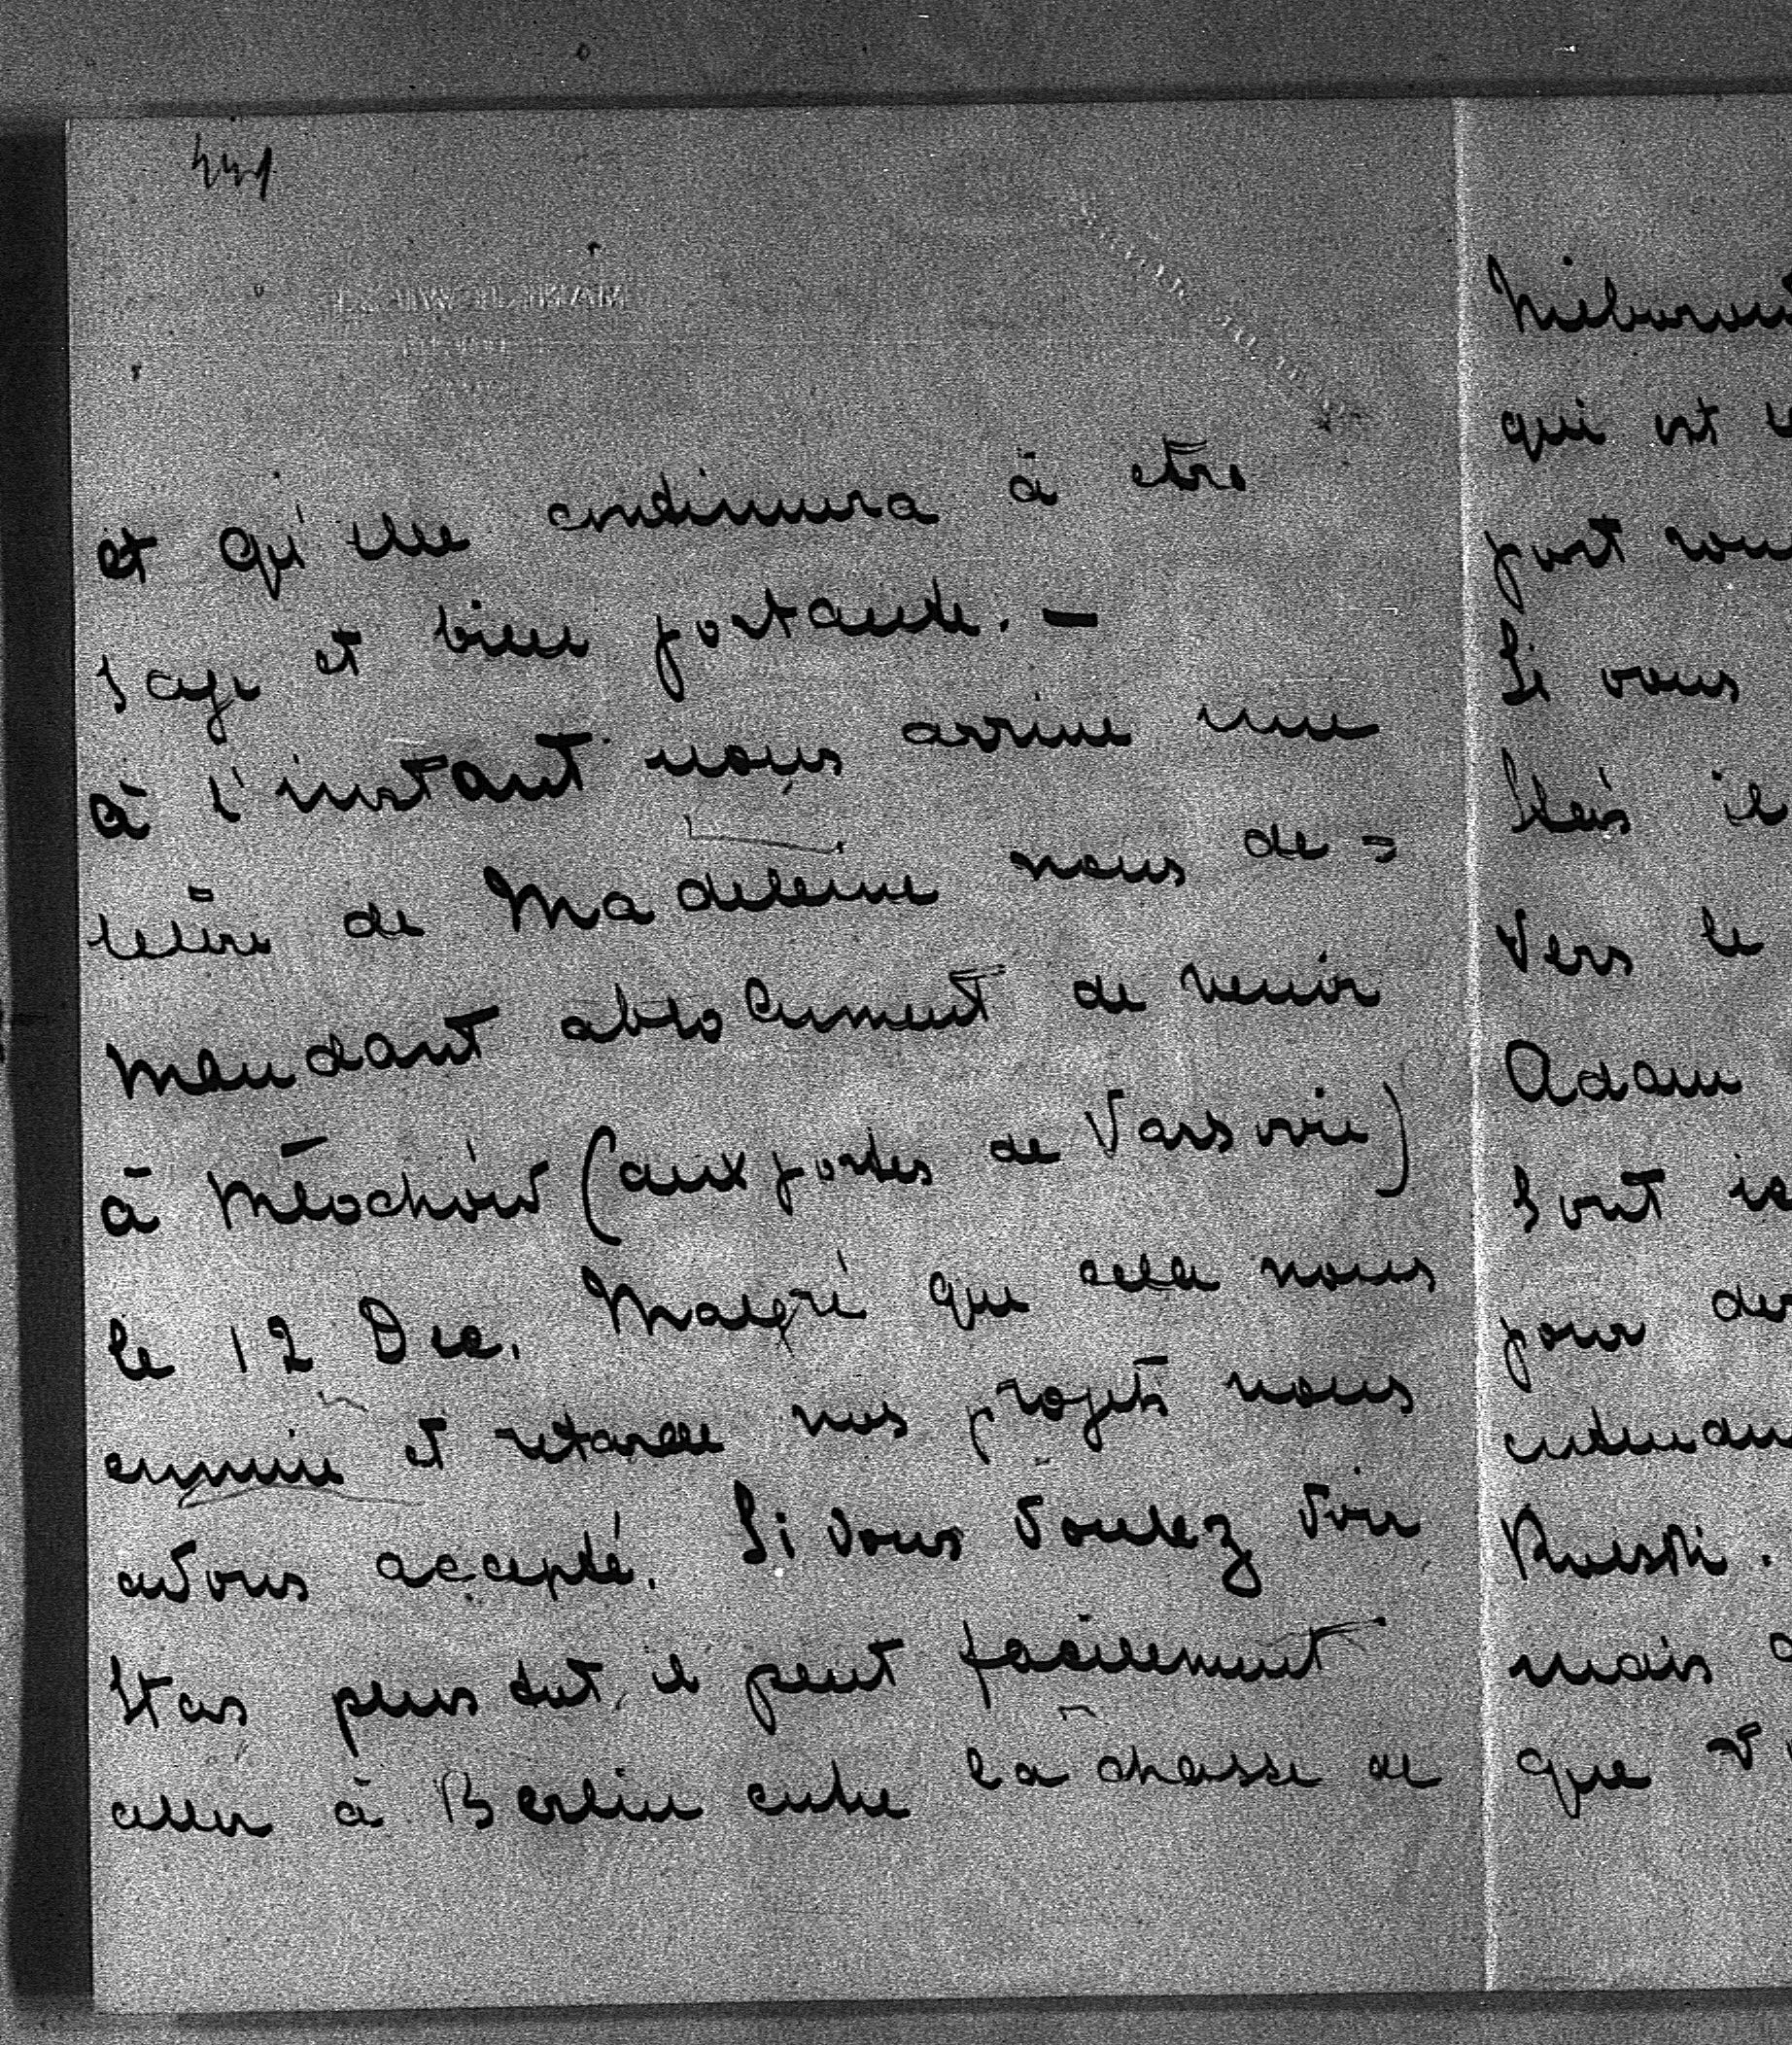 441
et qu'elle continuera à etre
sage et bien portante. —
à l'instant nous arrive une
lettre de Madeleine nous de=
mandant absolument de venir
à Młochów (aux portes de Varsovie)
le 12 Dec. Malgré que cela nous
ennuie et retarde nos projets nous
avons accepté. Si vous voulez voir
Stas plus tot, il peut facilement
aller à Berlin entre la chasse de
qui est
port
Si vous
Mais il
Vers le
Adam
sont
pour
mais
que